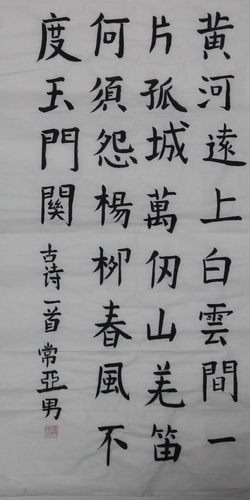 黄河遠上白雲間一
片孤城萬仞山羌笛
何須怨楊柳春風不
度玉門關
古诗一首 常亞男